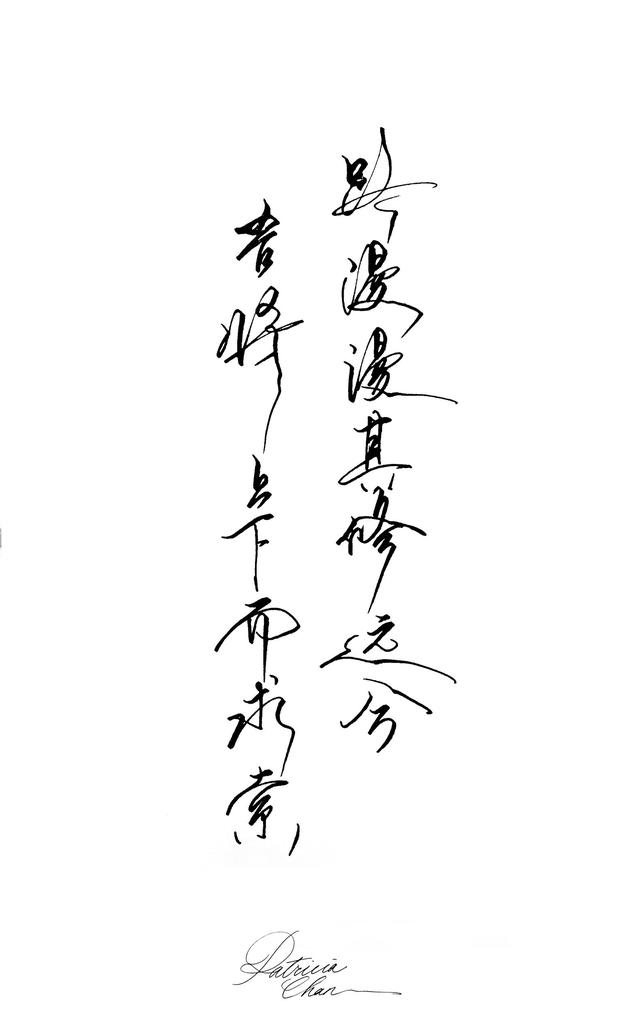 路漫漫其修远兮
吾将上下而求索
Patricia
Chan